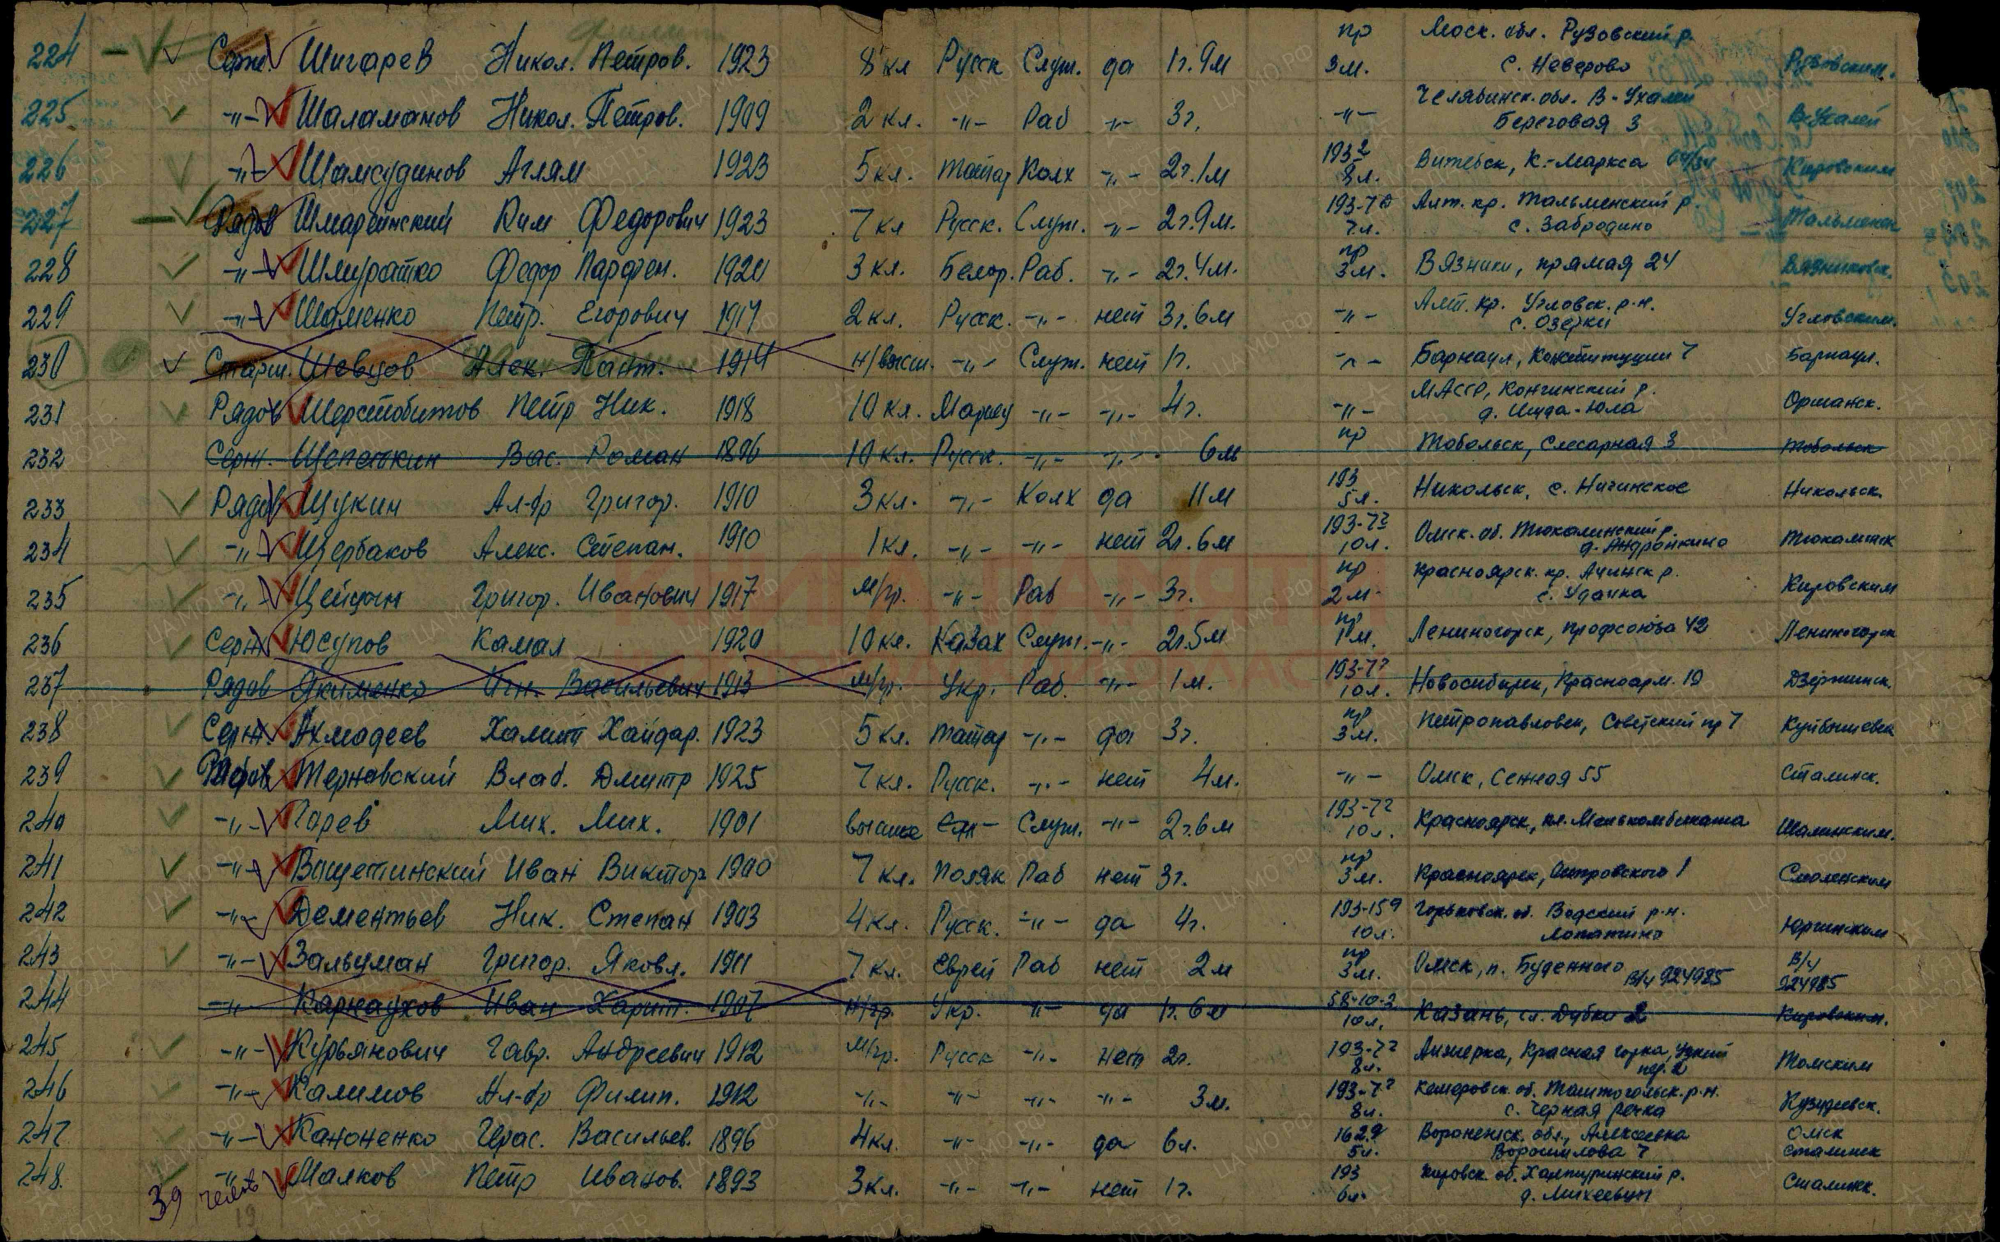 224 Серж. Шигарев Никол. Петров. 1923 8 кл Русск Служ. да 1г. 9м пр 3м. Моск. обл. Рузовский р. с. Неверово Рузовским.
225 -"- Шаламанов Никол. Петров. 1909 2 кл. -"- Раб -"- 3г. -"- Челябинск. обл. В-Ухалей Береговая 3 В-Ухалей
226 -"- Шамсудинов Аглям 1923 5 кл. Татар Колх -"- 2г.1м 193 2 8л. Витебск, К.-Маркса Кировским
227 Рядов Шмарсинский Ким Федорович 1923 7 кл Русск. Служ. -"- 2г.9м. 193-7 7л. Алт. кр. Тальменский р. с. Забродино Тальменск
228 -"- Шмуратко Федор Парфен. 1920 3 кл. Белор. Раб. -"- 2г.4м. пр 3м. Вязники, прямая 24 Вязниковск.
229 -"- Шаменко Петр. Егорович 1917 2 кл. Русск. -"- нет 3г.6м -"- Алт. кр. Угловск. р-н. с. Озерки Угловским.
230 Старш. Шевцов Алек. Пант. 1914 н/высш. -"- Служ. нет 1г. -"- Барнаул, Конституции 7 Барнаул.
231 Рядов Шерстобитов Петр Ник. 1918 10 кл. Мариец -"- -"- 4г. -"- МАССР, р. д. Ишда-Юла Оршанск.
232 Серж. Щепеткин Вас. Роман 1896 10 кл. Русск. -"- -"- 6м пр Тобольск, Слесарная 3 Тобольск
233 Рядов Щукин Ал-др Григор. 1910 3 кл. -"- Колх да 11м 193 5л. Никольск, с. Ничинское Никольск.
234 -"- Щербаков Алекс. Степан. 1910 1 кл. -"- -"- нет 2г.6м 193-7² 10л. Омск. об. Тюкалинский р. д. Андронкино Тюкалинск
235 -"- Цейцин Григор. Иванович 1917 м/гр. -"- Раб -"- 3г. пр 2м. Красноярск. кр. Ачинск р. с. Удачка Кировским
236 Серж Юсупов Камал 1920 10 кл. Казах Служ. -"- 2г.5м пр 1м. Лениногорск, профсоюза 42 Лениногорск
237 Рядов Якименко Игн. Васильевич 1913 м/гр. Укр. Раб. -"- 1м. 193-7² 10л. Новосибирск, Красноарм. 19 Дзержинск.
238 Серж. Ахмадеев Хамит Хайдар. 1923 5 кл. Татар -"- да 3г. пр 3м. Петропавловск, Советский пр 7 Куйбышевск
239 Рядов Терновский Влад. Дмитр 1925 7 кл. Русск. -"- нет 4м. -"- Омск, Сенная 55 Сталинск.
240 -"- Царев Мих. Мих. 1901 высшее -"- Служ. -"- 2г.6м 193-7² 10л. Красноярск, пл. Мелькомбината Шалинским.
241 -"- Ващетинский Иван Виктор 1900 7 кл. Поляк Раб нет 3г. пр 3м. Красноярск, Островского 1 Смоленским
242 -"- Дементьев Ник. Степан 1903 4 кл. Русск. -"- да 4г. 193-15⁹ 10л. Горьковск. об. Вадский р-н. Лопатино Юргинским
243 -"- Зальцман Григор. Яковл. 1911 7 кл. Еврей Раб нет 2м пр 3м. Омск, п. Буденного В/ч 924985 В/ч 924985
244 -"- Карнаухов Иван Харит. 1907 н/гр. Укр. -"- да 1г. 6м 58-10-2 10л. Казань, сл. Дубки 2 Кировским.
245 -"- Курьянович Гавр. Андреевич 1912 м/гр. Русск -"- нет 2г. 193-7² 8л. Анжерка, Красная горка, Узкий пер. 2 Томским
246 -"- Калимов Ал-др Филип. 1912 -"- -"- -"- -"- 3м. 193-7² 8л. Кемеровск. об. Таштогольск. р-н. с. Черная речка Кузедеевск.
247 -"- Кононенко Герас. Васильев. 1896 4 кл. -"- -"- да 6л. 162⁹ 5л. Воронежск. обл., Алексеевка Ворошилова 7 Омск Сталинск
248. -"- Малков Петр Иванов. 1893 3 кл. -"- -"- нет 1г. 193 6л. Кировск. об. Халтуринский р. д. Михеевцы Сталинск.
39 человек
19
КНИГА ПАМЯТИ
ЦА МО РФ
ПАМЯТЬ НАРОДА